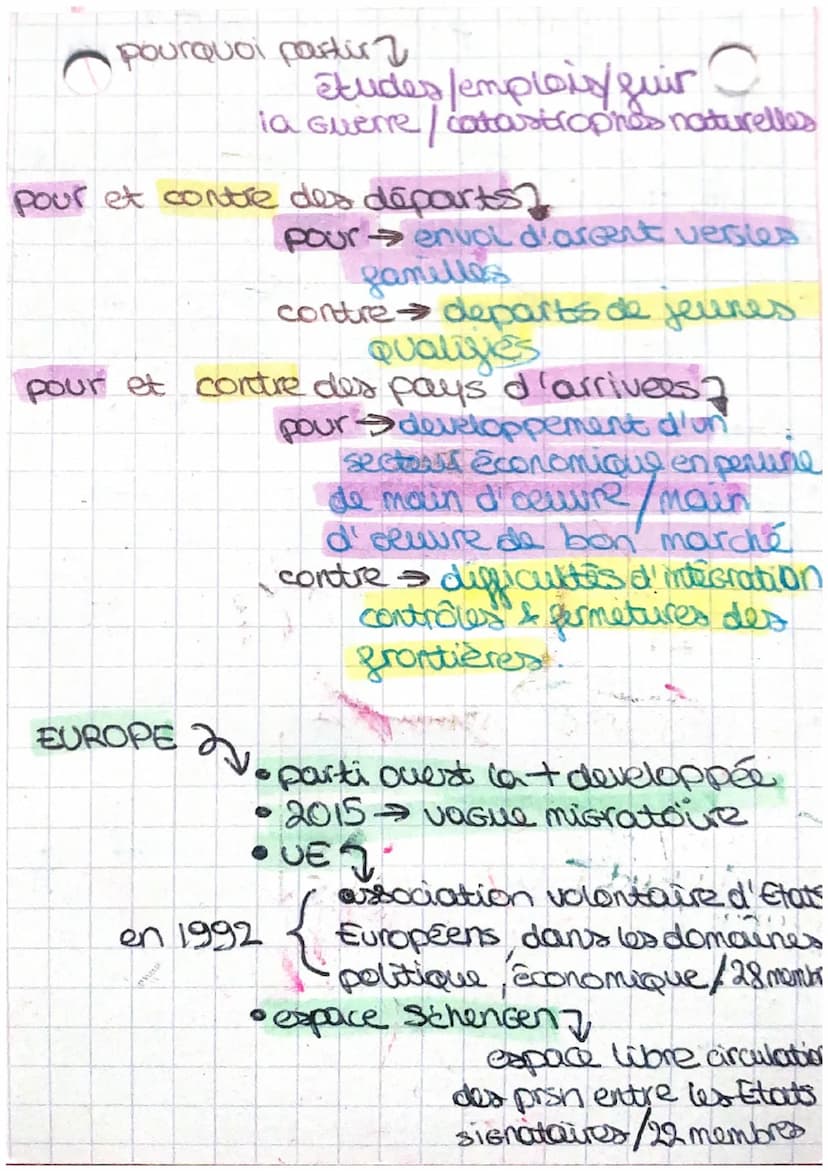 pourquoi partir
études/emplois/fuir
la guerre / catastrophes naturelles
pour et contre des départs
pour → envoi d'argent vers les
familles
contre → departs de jeunes
qualifiés
pour et contre des pays d'arrivees
pour → developpement d'un
secteur économique en penurie
de main d'oeuvre / main
d'oeuvre de bon marché
contre → difficultés d'intégration
contrôles & fermetures des
frontières.
EUROPE
• parti ouest la + developpée
• 2015 → vague migratoire
• UE
association volontaire d'Etats
en 1992 { Européens, dans les domaines
politique, économique / 28 memb
• espace Schengen
espace libre circulatio
des prsn entre les Etats
signataires / 22 membres